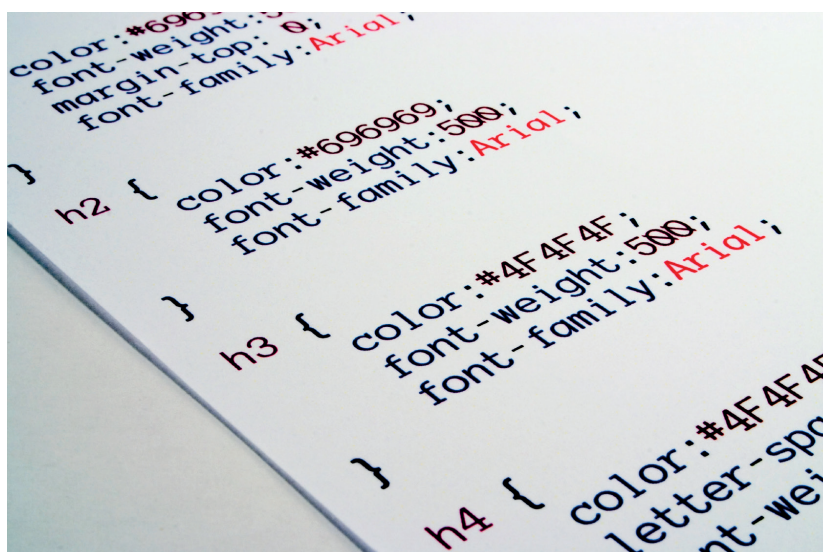 color:#6969
font-weight:5
margin-top: 0;
font-family:Arial;
}
h2 {
color:#696969;
font-weight:500;
font-family:Arial;
}
h3 {
color:#4F4F4F;
font-weight:500;
font-family:Arial;
}
h4 {
color:#4F4F4F
letter-spa
nt-wei